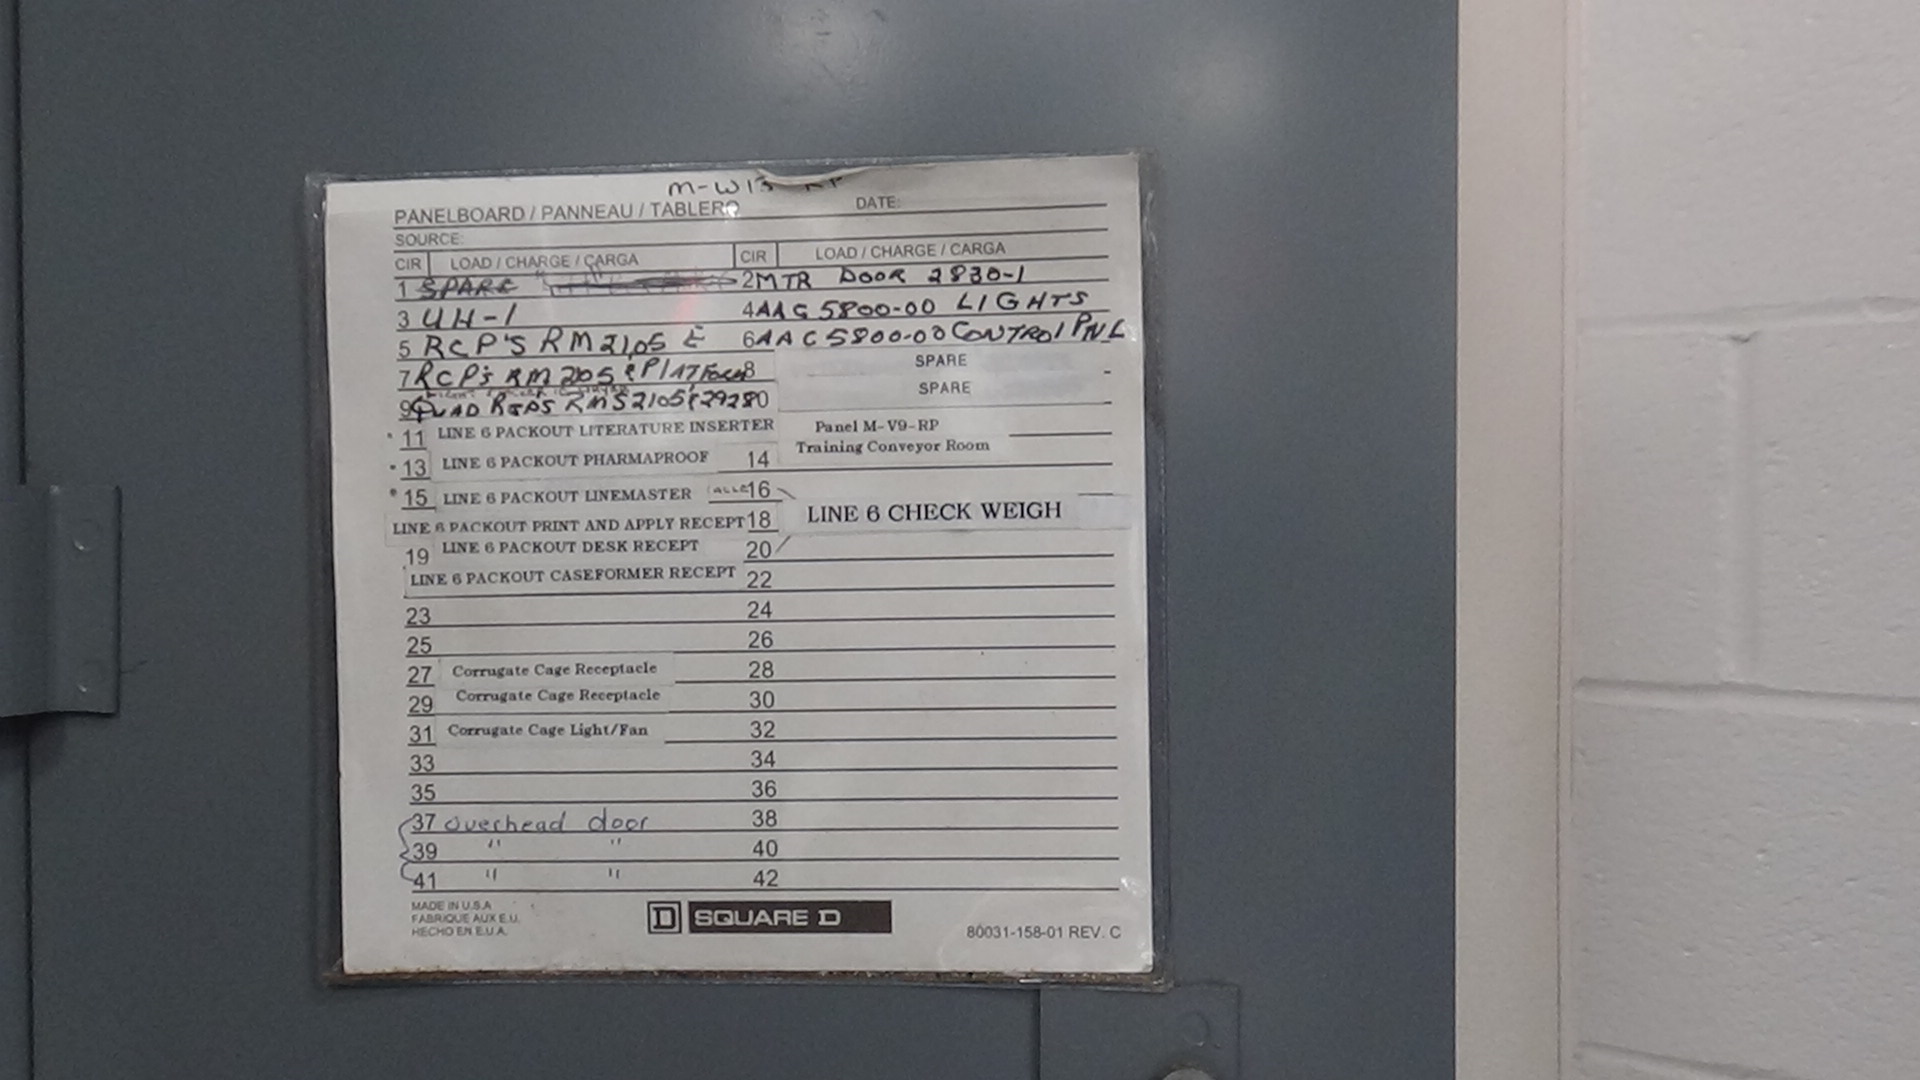 M-W13 RP
PANELBOARD / PANNEAU / TABLERO DATE:
SOURCE:
CIR LOAD / CHARGE / CARGA CIR LOAD / CHARGE / CARGA
1 SPARE 2 MTR DOOR 2830-1
3 UH-1 4 AAC 5800-00 LIGHTS
5 RCP'S RM 2105 E 6 AAC 5800-00 CONTROL PNL
7 RCP's RM 2105 & PLATFORM 8 SPARE
9 QUAD RCPS RMS 2105 & 2928 0 SPARE
11 LINE 6 PACKOUT LITERATURE INSERTER Panel M-V9-RP
Training Conveyor Room
13 LINE 6 PACKOUT PHARMAPROOF 14
15 LINE 6 PACKOUT LINEMASTER 16
LINE 6 PACKOUT PRINT AND APPLY RECEPT 18 LINE 6 CHECK WEIGH
19 LINE 6 PACKOUT DESK RECEPT 20
LINE 6 PACKOUT CASEFORMER RECEPT 22
23 24
25 26
27 Corrugate Cage Receptacle 28
29 Corrugate Cage Receptacle 30
31 Corrugate Cage Light/Fan 32
33 34
35 36
37 overhead door 38
39 " " 40
41 " " 42
MADE IN U.S.A
FABRIQUE AUX E.U.
HECHO EN E.U.A.
D SQUARE D
80031-158-01 REV. C